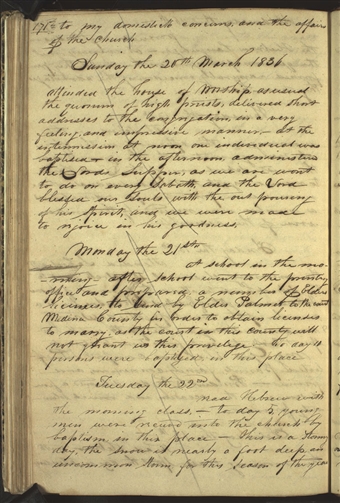 175 to my domestick concerns, and the affairs
of the church
Sunday the 20th March 1836
attended the house of worship as usual
the quorum of high priests, delivered short
addresses to the congregation, in a very
feeling, and impressive manner,— at the
intermission at noon one individual was
baptised— in the afternoon, administered
the Lords Supper, as we are wont
to do on every Sabath, and the Lord
blessed our Souls with the out pouring
of his Spirit, and we were made
to rejoice in his goodness.
Monday the 21st
at school in the mo-
rning— after school went to the printing
office and prepared, a number of Elders
licenses, to send by Elder Palmer to the court
Medina County in order to obtain licenses
to marry, as the court in this county will
not grant us this privilege — to day 10
persons were baptized, in this place
Tuesday the 22nd
read Hebrew with
the morning class,— to day 5, young
men were received into the church by
baptism, in this place — This is a stormy
day, the snow is nearly a foot deep, an
uncommon storm for this season of the year